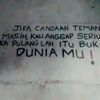 JIKA CANDAAN TEMAN
MASIH KAU ANGGAP SERIU
KA PULANGLAH ITU BUK
DUNIA MU !